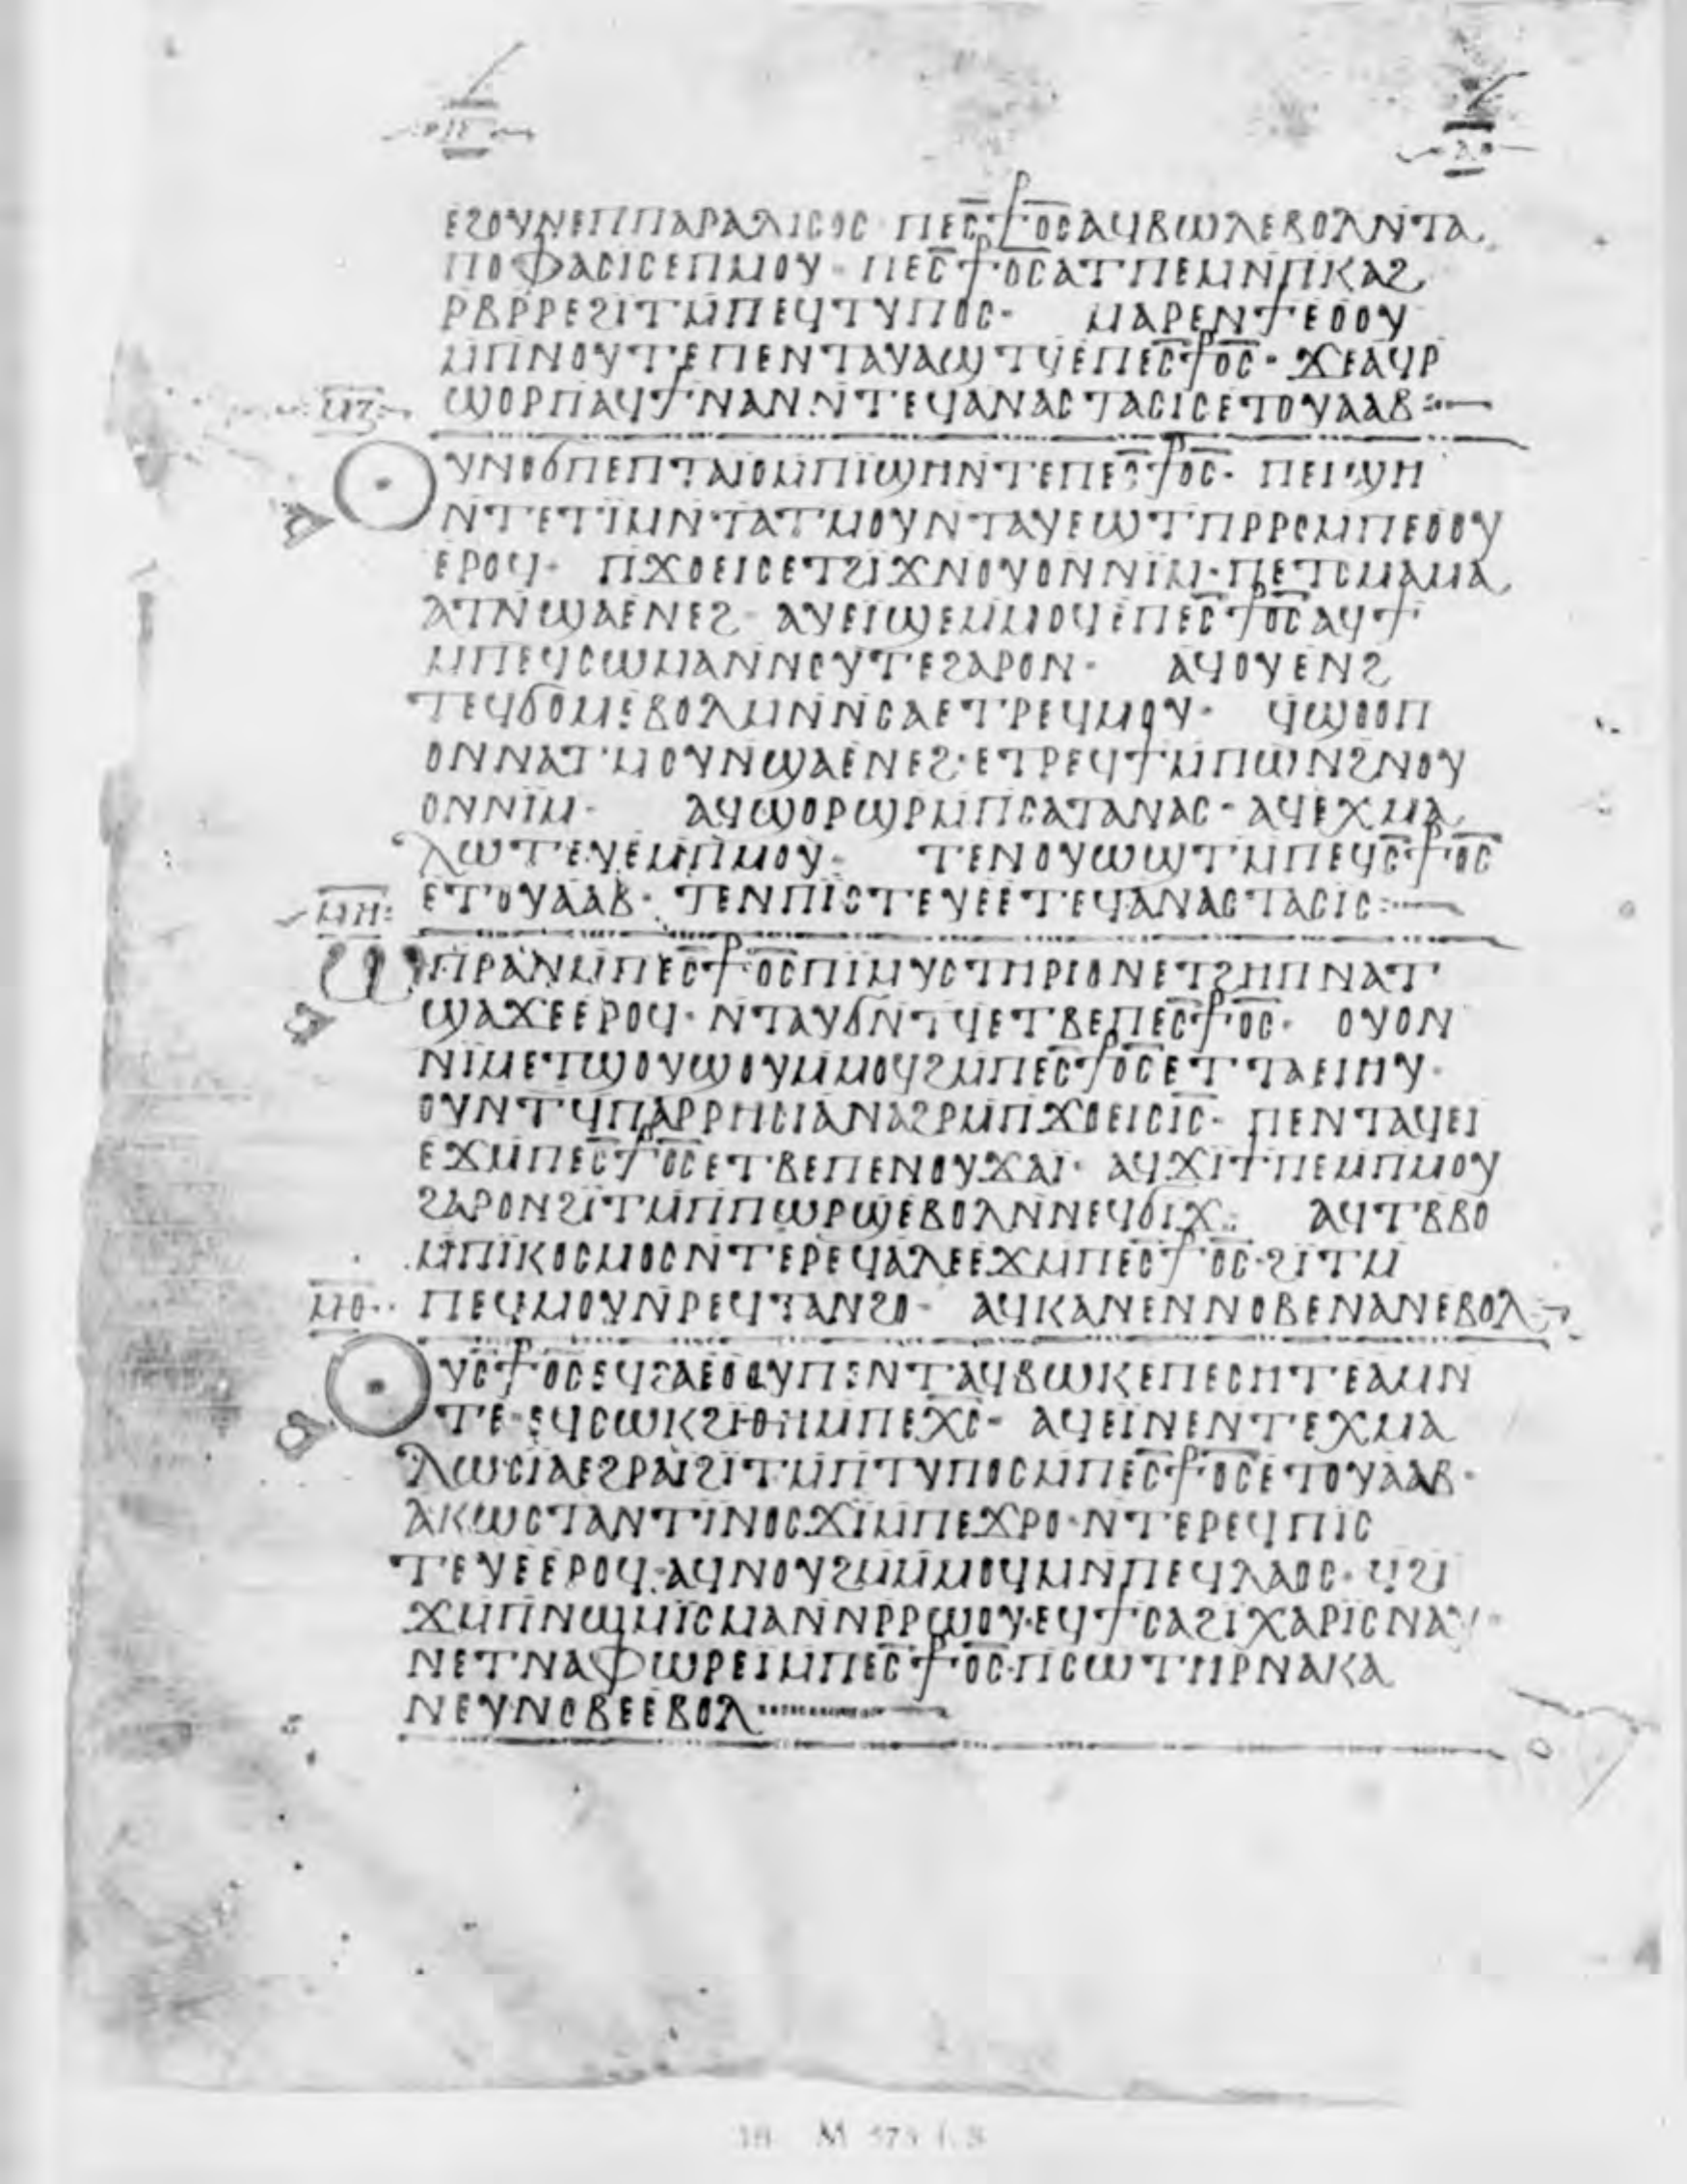 ⲉϩⲟⲩⲛⲉⲡⲡⲁⲣⲁⲇⲓⲥⲟⲥ· ⲡⲉⲥ̅⳨ⲟⲥ̅ⲁϥⲃⲱⲗⲉⲃⲟⲗⲛ̄ⲧⲁ
ⲡⲟⲫⲁⲥⲓⲥⲉⲡⲙⲟⲩ· ⲡⲉⲥ̅⳨ⲟⲥ̅ⲁⲧⲡⲉⲙⲛ̄ⲡⲕⲁϩ
ⲣⲃⲣ̄ⲣⲉϩⲓⲧⲙ̄ⲡⲉϥⲧⲩⲡⲟⲥ· ⲙⲁⲣⲉⲛϯⲉⲟⲟⲩ
ⲙ̄ⲡⲛⲟⲩⲧⲉⲡⲉⲛⲧⲁⲩⲁϣⲧϥ̄ⲉⲡⲉⲥ̅⳨ⲟⲥ̅· ϫⲉⲁϥⲣ̄
ϣⲟⲣⲡⲁϥϯⲛⲁⲛ·ⲛ̄ⲧⲉϥⲁⲛⲁⲥⲧⲁⲥⲓⲥⲉⲧⲟⲩⲁⲁⲃ:—
ⲙⲍ
ⲟⲩⲛⲟϭⲡⲉⲡⲧⲁⲓⲟⲙ̄ⲡⲓϣⲏⲛ̄ⲧⲉⲡⲉⲥ̅⳨ⲟⲥ̅· ⲡⲉⲓϣⲏ
ⲛ̄ⲧⲉⲧⲓⲙⲛ̄ⲧⲁⲧⲙⲟⲩⲛ̄ⲧⲁⲩⲉⲱⲧⲡ̄ⲣ̄ⲣⲟⲙ̄ⲡⲉⲟⲟⲩ
ⲉⲣⲟϥ· ⲡϫⲟⲉⲓⲥⲉⲧϩⲓϫⲛⲟⲩⲟⲛⲛⲓⲙ·ⲡⲉⲧⲥⲙⲁⲙⲁ
ⲁⲧⲛ̄ϣⲁⲉⲛⲉϩ· ⲁⲩⲉⲓϣⲉⲙ̄ⲙⲟϥⲉⲡⲉⲥ̅⳨ⲟⲥ̅ⲁϥϯ
ⲙ̄ⲡⲉϥⲥⲱⲙⲁⲛ̄ⲛⲟⲩⲧⲉϩⲁⲣⲟⲛ· ⲁϥⲟⲩⲉⲛϩ
ⲧⲉϥϭⲟⲙⲉⲃⲟⲗⲙⲛ̄ⲛ̄ⲥⲁⲉⲧⲣⲉϥⲙⲟⲩ· ϥϣⲟⲟⲡ
ⲟⲛⲛⲁⲧⲙⲟⲩⲛ̄ϣⲁⲉⲛⲉϩ·ⲉⲧⲣⲉϥϯⲙ̄ⲡⲱⲛϩⲛⲟⲩ
ⲟⲛⲛⲓⲙ· ⲁϥϣⲟⲣϣⲣ̄ⲙ̄ⲡⲥⲁⲧⲁⲛⲁⲥ· ⲁϥⲉⲭⲙⲁ
ⲗⲱⲧⲉⲩⲉⲙ̄ⲡⲙⲟⲩ· ⲧⲉⲛⲟⲩⲱϣⲧⲙ̄ⲡⲉϥⲥ̅⳨ⲟⲥ̅
ⲉⲧⲟⲩⲁⲁⲃ· ⲧⲉⲛⲡⲓⲥⲧⲉⲩⲉⲉⲧⲉϥⲁⲛⲁⲥⲧⲁⲥⲓⲥ:—
ⲙⲏ
ⲱⲡⲣⲁⲛⲙ̄ⲡⲉⲥ̅⳨ⲟⲥ̅ⲡⲓⲙⲩⲥⲧⲏⲣⲓⲟⲛⲉⲧϩⲏⲡⲛ̄ⲁⲧ
ϣⲁϫⲉⲉⲣⲟϥ· ⲛ̄ⲧⲁⲩϭⲛ̄ⲧϥ̄ⲉⲧⲃⲉⲡⲉⲥ̅⳨ⲟⲥ̅· ⲟⲩⲟⲛ
ⲛⲓⲙⲉⲧϣⲟⲩϣⲟⲩⲙ̄ⲙⲟϥϩⲙ̄ⲡⲉⲥ̅⳨ⲟⲥ̅ⲉⲧⲧⲁⲉⲓⲏⲩ·
ⲟⲩⲛ̄ⲧϥ̄ⲡⲁⲣⲣⲏⲥⲓⲁⲛⲁϩⲣⲙ̄ⲡϫⲟⲉⲓⲥⲓ̅ⲥ̅· ⲡⲉⲛⲧⲁϥⲉⲓ
ⲉϫⲙ̄ⲡⲉⲥ̅⳨ⲟⲥ̅ⲉⲧⲃⲉⲡⲉⲛⲟⲩϫⲁⲓ· ⲁϥϫⲓϯⲡⲉⲙ̄ⲡⲙⲟⲩ
ϩⲁⲣⲟⲛϩⲓⲧⲙ̄ⲡⲡⲱⲣϣ̄ⲉⲃⲟⲗⲛ̄ⲛⲉϥϭⲓϫ: ⲁϥⲧⲃ̄ⲃⲟ
ⲙ̄ⲡⲓⲕⲟⲥⲙⲟⲥⲛ̄ⲧⲉⲣⲉϥⲁⲗⲉⲉϫⲙ̄ⲡⲉⲥ̅⳨ⲟⲥ̅·ϩⲓⲧⲙ̄
ⲙⲑ
ⲡⲉϥⲙⲟⲩⲛ̄ⲣⲉϥⲧⲁⲛϩⲟ· ⲁϥⲕⲁⲛⲉⲛⲛⲟⲃⲉⲛⲁⲛⲉⲃⲟⲗ
ⲟⲩⲥ̅⳨ⲟⲥ̅ⲉϥϩⲁⲉⲟⲟⲩⲡⲉⲛⲧⲁϥⲃⲱⲕⲉⲡⲉⲥⲏⲧⲉⲁⲙⲛ̄
ⲧⲉ·ⲉϥⲥⲱⲕϩⲓⲑⲏⲙ̄ⲡⲉⲭ̅ⲥ̅· ⲁϥⲉⲓⲛⲉⲛ̄ⲧⲉⲭⲙⲁ
ⲗⲱⲥⲓⲁⲉϩⲣⲁⲓϩⲓⲧⲙ̄ⲡⲧⲩⲡⲟⲥⲙ̄ⲡⲉⲥ̅⳨ⲟⲥ̅ⲉⲧⲟⲩⲁⲁⲃ·
ⲁⲕⲱⲥⲧⲁⲛⲧⲓⲛⲟⲥϫⲓⲙ̄ⲡⲉϫⲣⲟ·ⲛ̄ⲧⲉⲣⲉϥⲡⲓⲥ
ⲧⲉⲩⲉⲉⲣⲟϥ·ⲁϥⲛⲟⲩϩⲙ̄ⲙ̄ⲙⲟϥⲙⲛ̄ⲡⲉϥⲗⲁⲟⲥ· ϥϩⲓ
ϫⲙ̄ⲡⲛϣⲙⲓⲥⲙⲁⲛ̄ⲛⲣ̄ⲣⲱⲟⲩ·ⲉϥϯⲥⲁϩⲓⲭⲁⲣⲓⲥⲛⲁⲩ
ⲛⲉⲧⲛⲁⲫⲱⲣⲉⲓⲙ̄ⲡⲉⲥ̅⳨ⲟⲥ̅·ⲡⲥⲱⲧⲏⲣⲛⲁⲕⲁ
ⲛⲉⲩⲛⲟⲃⲉⲉⲃⲟⲗ